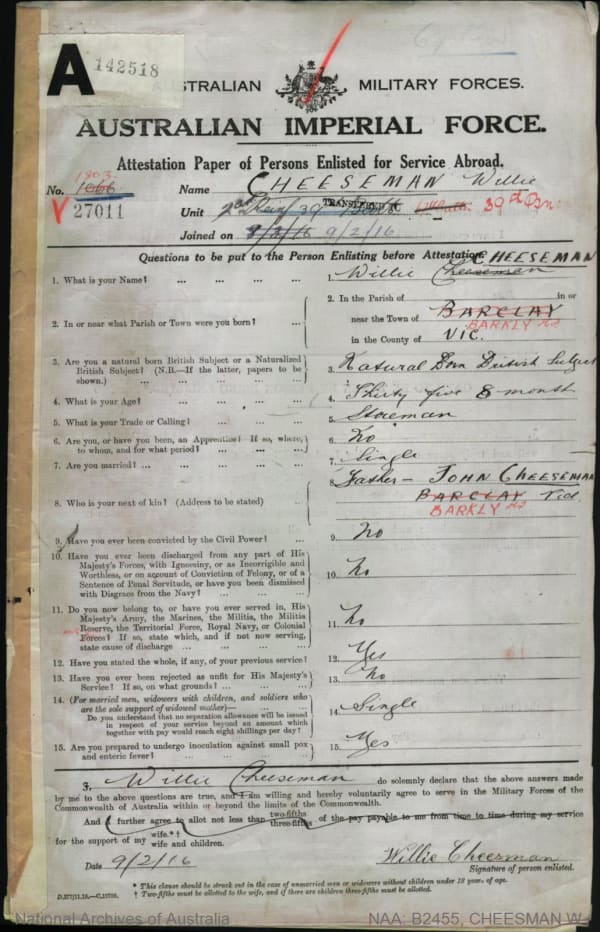 A
142518
AUSTRALIAN MILITARY FORCES.
AUSTRALIAN IMPERIAL FORCE.
Attestation Paper of Persons Enlisted for Service Abroad.
1803
No. 1066 Name CHEESEMAN Willie
V 27011 Unit 39 TRANSFERRED 39th Bn.
Joined on 8/3/16 9/2/16
Questions to be put to the Person Enlisting before Attestation.
CHEESEMAN
1. What is your Name? ... ... ... ... 1. Willie Cheeseman
2. In or near what Parish or Town were you born? ...
2. In the Parish of in or
near the Town of BARCLAY
BARKLY
in the County of VIC.
3. Are you a natural born British Subject or a Naturalized
British Subject? (N.B.—If the latter, papers to be
shown.) ... ... ... ... ...
3. Natural Born British Subject
4. What is your Age? ... ... ... ... 4. Thirty five 8 month
5. What is your Trade or Calling? ... ... ... 5. Storeman
6. Are you, or have you been, an Apprentice? If so, where,
to whom, and for what period? ... ... ...
6. No
7. Are you married? ... ... ... ... ... 7. Single
8. Who is your next of kin? (Address to be stated) ...
8. Father — JOHN CHEESEMAN
BARCLAY Vic.
BARKLY
9. Have you ever been convicted by the Civil Power? ... 9. No
10. Have you ever been discharged from any part of His
Majesty's Forces, with Ignominy, or as Incorrigible and
Worthless, or on account of Conviction of Felony, or of a
Sentence of Penal Servitude, or have you been dismissed
with Disgrace from the Navy? ... ... ...
10. No
11. Do you now belong to, or have you ever served in, His
Majesty's Army, the Marines, the Militia, the Militia
Reserve, the Territorial Force, Royal Navy, or Colonial
Forces? If so, state which, and if not now serving,
state cause of discharge ... ... ... ...
11. No
12. Have you stated the whole, if any, of your previous service? 12. Yes
13. Have you ever been rejected as unfit for His Majesty's
Service? If so, on what grounds? ... ... ...
13. No
14. (For married men, widowers with children, and soldiers who
are the sole support of widowed mother)—
Do you understand that no separation allowance will be issued
in respect of your service beyond an amount which
together with pay would reach eight shillings per day?
14. Single
15. Are you prepared to undergo inoculation against small pox
and enteric fever? ... ... ... ... ...
15. Yes
I, Willie Cheeseman do solemnly declare that the above answers made
by me to the above questions are true, and I am willing and hereby voluntarily agree to serve in the Military Forces of the
Commonwealth of Australia within or beyond the limits of the Commonwealth.
And I further agree to allot not less than two-fifths three-fifths of the pay payable to me from time to time during my service
for the support of my wife.*† wife and children.
Date 9/2/16 Willie Cheeseman
Signature of person enlisted.
* This clause should be struck out in the case of unmarried men or widowers without children under 18 year. of age.
† Two-fifths must be allotted to the wife, and if there are children three-fifths must be allotted.
National Archives of Australia NAA: B2455, CHEESMAN W